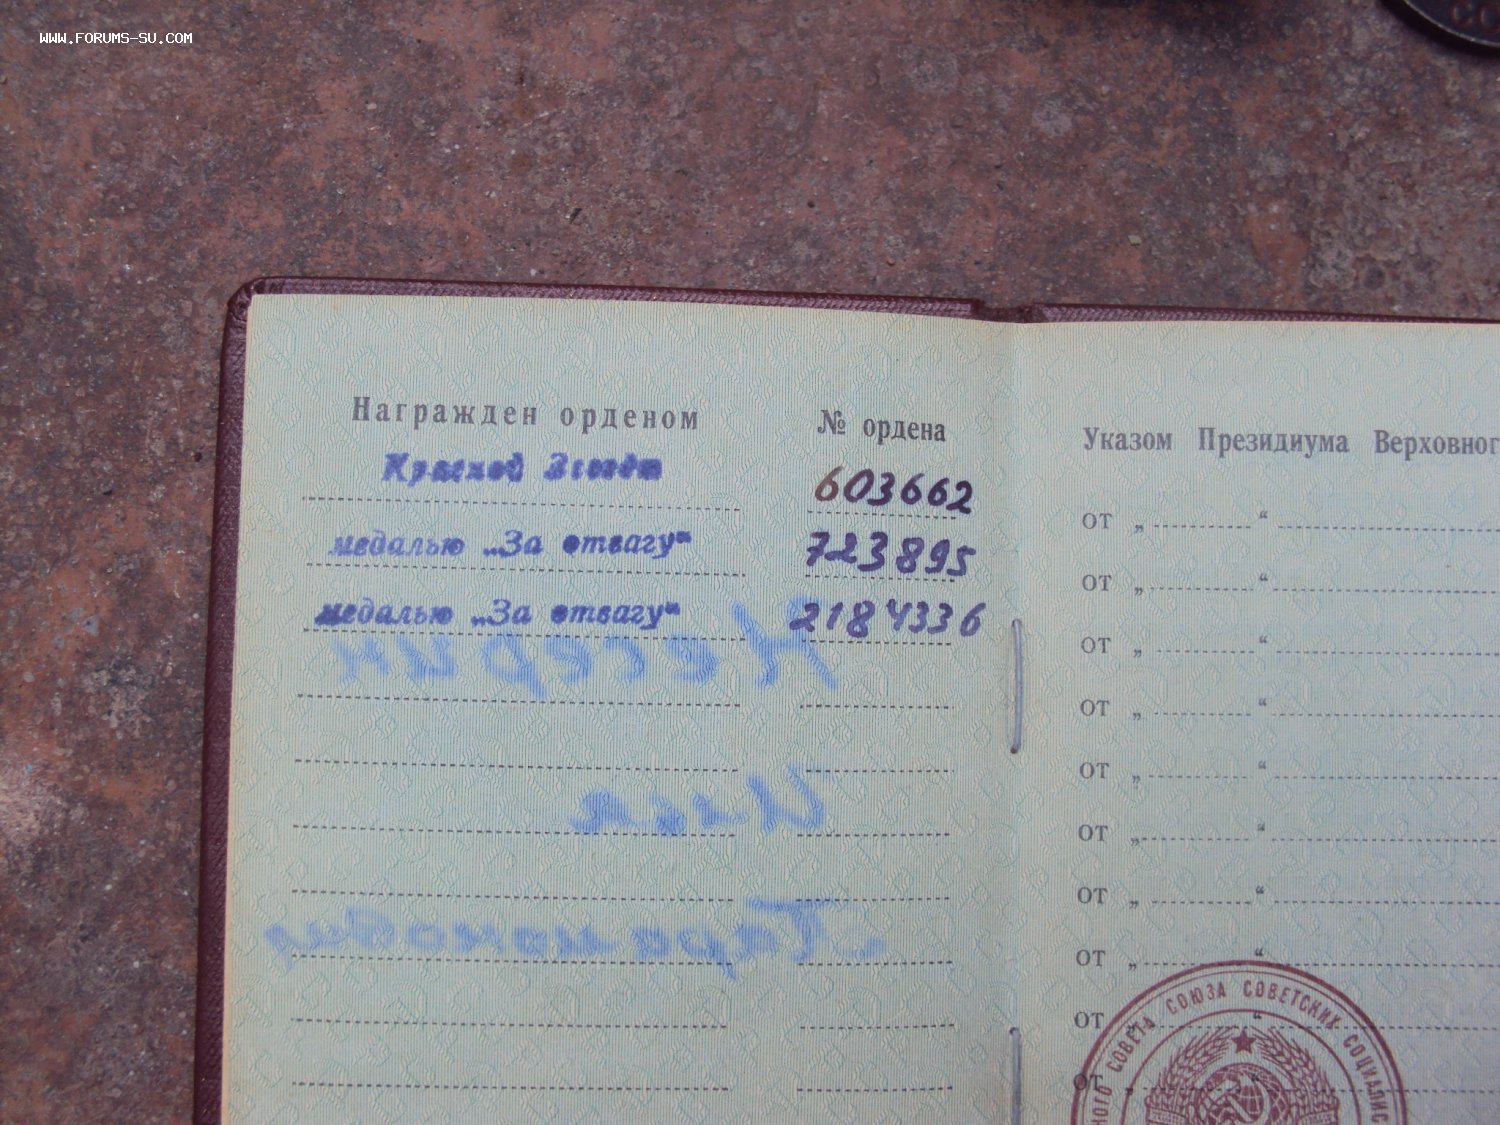 WWW.FORUMS-SU.COM
СС
Награжден орденом № ордена
Красной Звезды 603662
медалью „За отвагу“ 723895
медалью „За отвагу“ 2184336
Указом Президиума Верховног
от „ “
от „ “
от „ “
от „ “
от „ “
от „ “
от „ “
от „ “
от „ “
от „ “
НОГО СОВЕТА СОЮЗА СОВЕТСКИХ СОЦИАЛИС